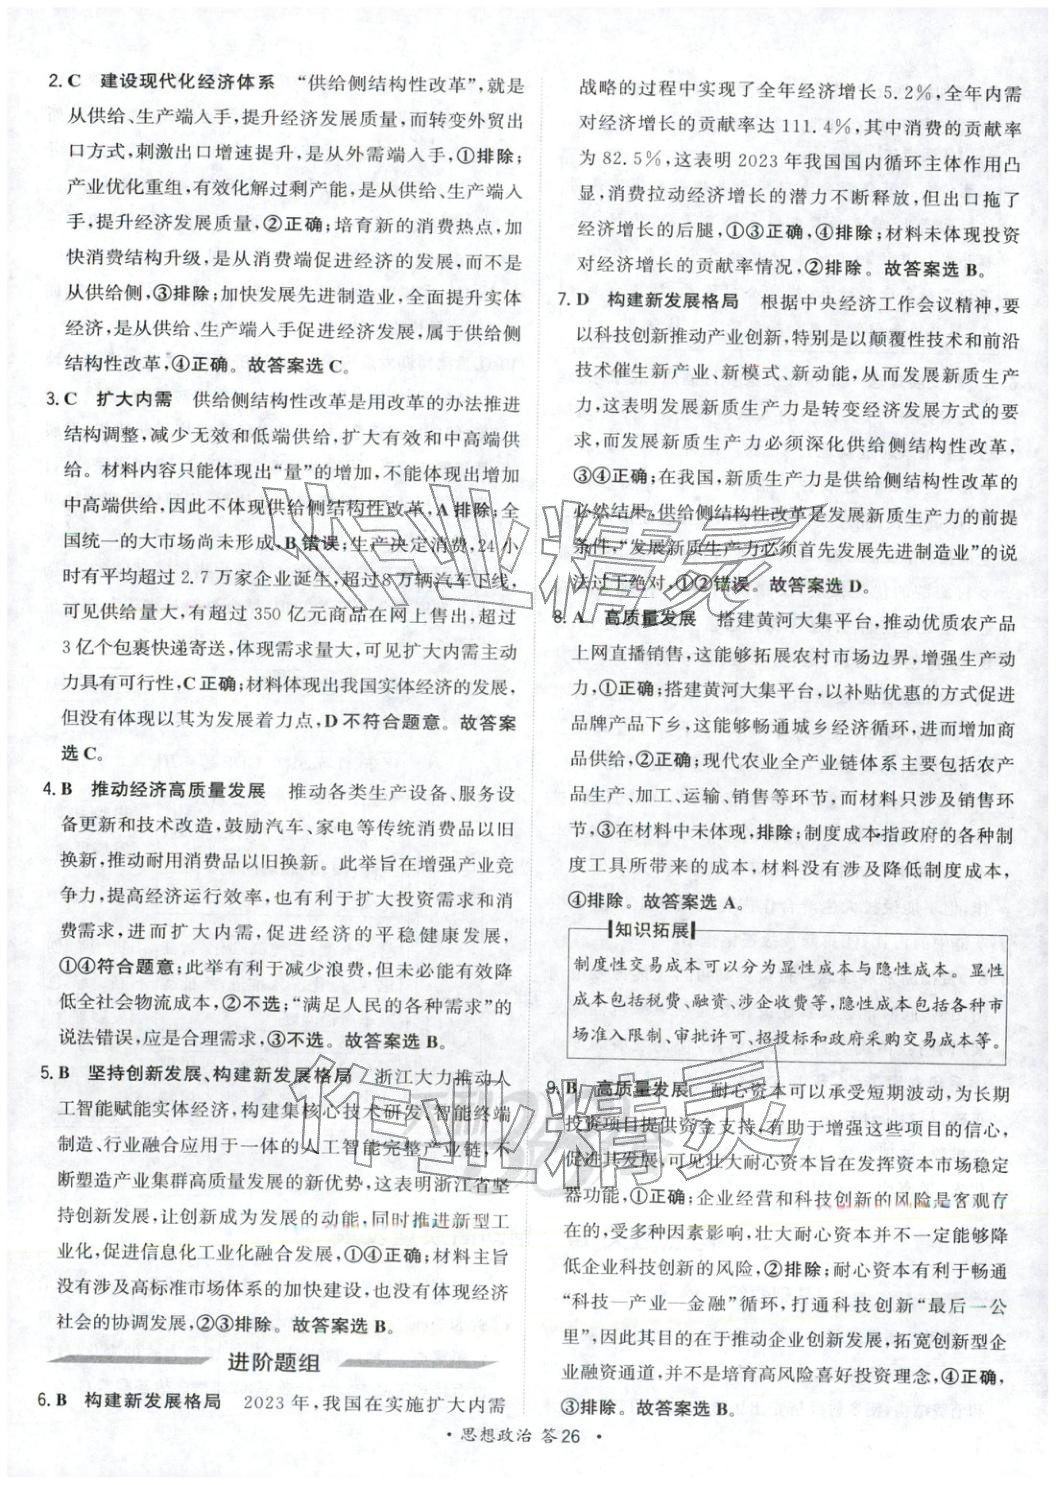 2. C　建设现代化经济体系　“供给侧结构性改革”,就是
从供给、生产端入手,提升经济发展质量,而转变外贸出
口方式,刺激出口增速提升,是从外需端入手,①排除;
产业优化重组,有效化解过剩产能,是从供给、生产端入
手,提升经济发展质量,②正确;培育新的消费热点,加
快消费结构升级,是从消费端促进经济的发展,而不是
从供给侧,③排除;加快发展先进制造业,全面提升实体
经济,是从供给、生产端入手促进经济发展,属于供给侧
结构性改革,④正确。故答案选 C。
3. C　扩大内需　供给侧结构性改革是用改革的办法推进
结构调整,减少无效和低端供给,扩大有效和中高端供
给。材料内容只能体现出“量”的增加,不能体现出增加
中高端供给,因此不体现供给侧结构性改革,A 排除;全
国统一的大市场尚未形成,B 错误;生产决定消费,24 小
时有平均超过 2.7 万家企业诞生,超过8万辆汽车下线,
可见供给量大,有超过 350 亿元商品在网上售出,超过
3 亿个包裹快递寄送,体现需求量大,可见扩大内需主动
力具有可行性,C 正确;材料体现出我国实体经济的发展,
但没有体现以其为发展着力点,D 不符合题意。故答案
选 C。
4. B　推动经济高质量发展　推动各类生产设备、服务设
备更新和技术改造,鼓励汽车、家电等传统消费品以旧
换新,推动耐用消费品以旧换新。此举旨在增强产业竞
争力,提高经济运行效率,也有利于扩大投资需求和消
费需求,进而扩大内需,促进经济的平稳健康发展,
①④符合题意;此举有利于减少浪费,但未必能有效降
低全社会物流成本,②不选;“满足人民的各种需求”的
说法错误,应是合理需求,③不选。故答案选 B。
5. B　坚持创新发展、构建新发展格局　浙江大力推动人
工智能赋能实体经济,构建集核心技术研发、智能终端
制造、行业融合应用于一体的人工智能完整产业链,不
断塑造产业集群高质量发展的新优势,这表明浙江省坚
持创新发展,让创新成为发展的动能,同时推进新型工
业化,促进信息化工业化融合发展,①④正确;材料主旨
没有涉及高标准市场体系的加快建设,也没有体现经济
社会的协调发展,②③排除。故答案选 B。
进阶题组
6. B　构建新发展格局　2023 年,我国在实施扩大内需
战略的过程中实现了全年经济增长 5.2%,全年内需
对经济增长的贡献率达 111.4%,其中消费的贡献率
为 82.5%,这表明 2023 年我国国内循环主体作用凸
显,消费拉动经济增长的潜力不断释放,但出口拖了
经济增长的后腿,①③正确,④排除;材料未体现投资
对经济增长的贡献率情况,②排除。故答案选 B。
7. D　构建新发展格局　根据中央经济工作会议精神,要
以科技创新推动产业创新,特别是以颠覆性技术和前沿
技术催生新产业、新模式、新动能,从而发展新质生产
力,这表明发展新质生产力是转变经济发展方式的要
求,而发展新质生产力必须深化供给侧结构性改革,
③④正确;在我国,新质生产力是供给侧结构性改革的
必然结果,供给侧结构性改革是发展新质生产力的前提
条件,“发展新质生产力必须首先发展先进制造业”的说
法过于绝对,①②错误。故答案选 D。
8. A　高质量发展　搭建黄河大集平台,推动优质农产品
上网直播销售,这能够拓展农村市场边界,增强生产动
力,①正确;搭建黄河大集平台,以补贴优惠的方式促进
品牌产品下乡,这能够畅通城乡经济循环,进而增加商
品供给,②正确;现代农业全产业链体系主要包括农产
品生产、加工、运输、销售等环节,而材料只涉及销售环
节,③在材料中未体现,排除;制度成本指政府的各种制
度工具所带来的成本,材料没有涉及降低制度成本,
④排除。故答案选 A。
知识拓展
制度性交易成本可以分为显性成本与隐性成本。显性
成本包括税费、融资、涉企收费等,隐性成本包括各种市
场准入限制、审批许可、招投标和政府采购交易成本等。
9. B　高质量发展　耐心资本可以承受短期波动,为长期
投资项目提供资金支持,有助于增强这些项目的信心,
促进其发展,可见壮大耐心资本旨在发挥资本市场稳定
器功能,①正确;企业经营和科技创新的风险是客观存
在的,受多种因素影响,壮大耐心资本并不一定能够降
低企业科技创新的风险,②排除;耐心资本有利于畅通
“科技—产业—金融”循环,打通科技创新“最后一公
里”,因此其目的在于推动企业创新发展,拓宽创新型企
业融资通道,而不是培育高风险喜好投资理念,④正确,
③排除。故答案选 B。
· 思想政治 答26 ·
作业精灵
作业精灵